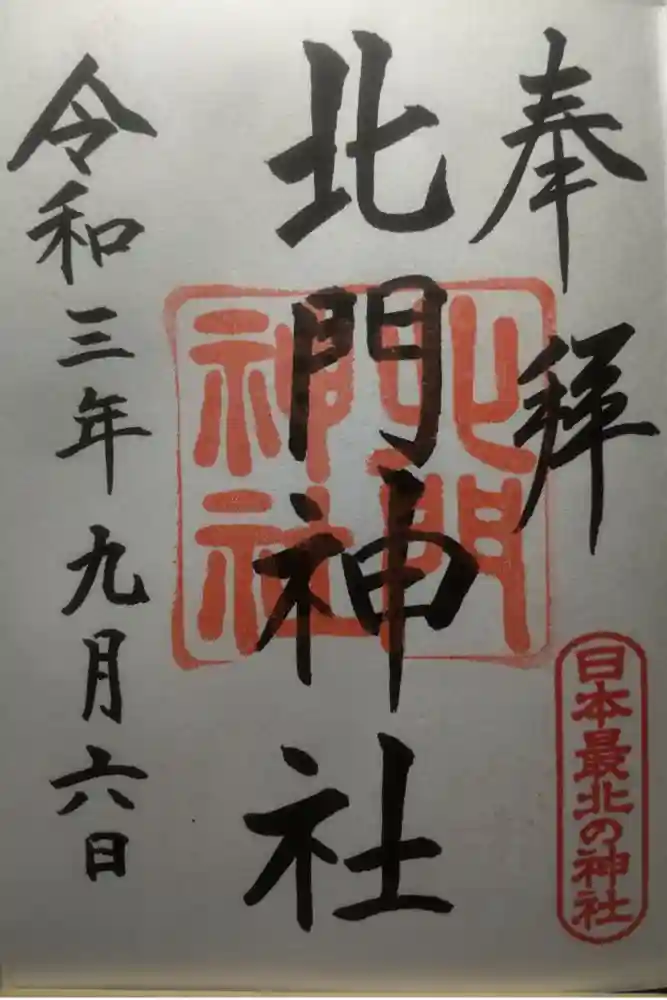 奉拝
日本最北の神社
北門神社
北門神社
令和三年九月六日